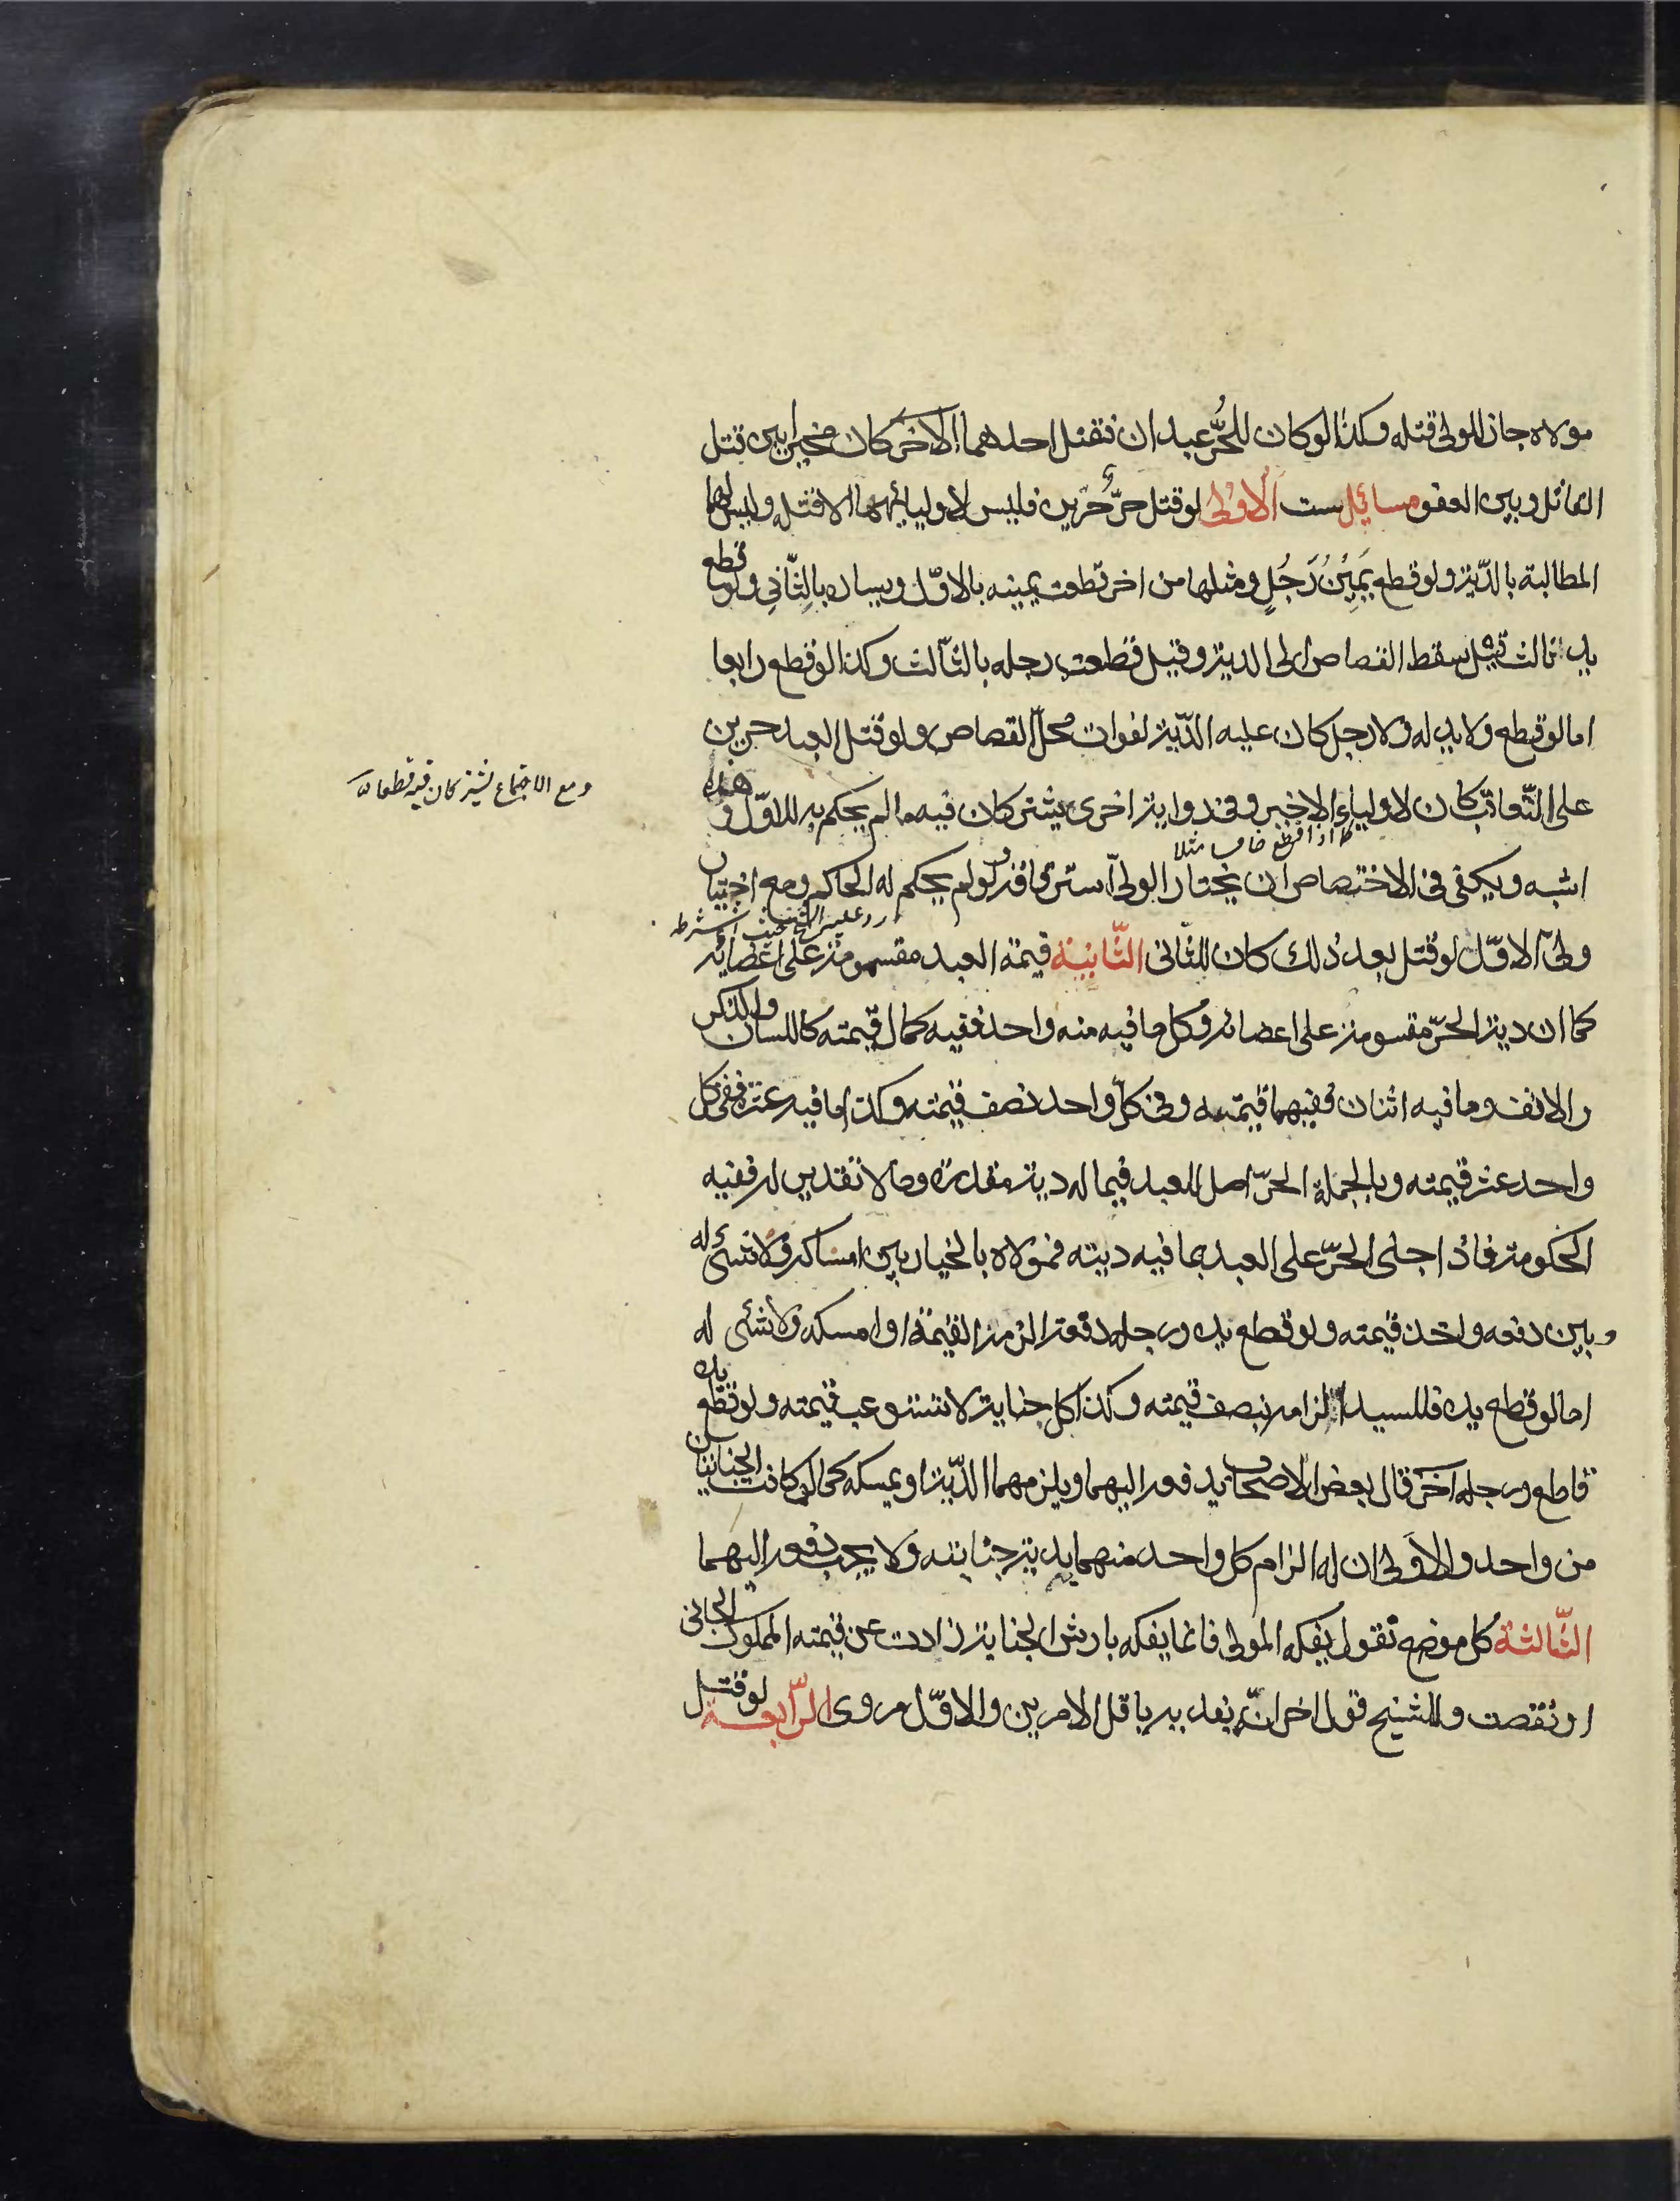 مولاه جاز للمولى قتله وكذا لو كان للحُرّ عبدان فقتل احدهما الآخر كان مخيرا بين قتل
القاتل وبين العفو مسائل ست الاُولى لو قتل حرّ حُرّين فليس لاوليائهما الا قتله وليس لهما
المطالبة بالدّية ولو قطع يَمِيْنُ رَجُلٍ ومثلها من اخر قطعت يمينه بالاوّل ويساره بالثّانِي ولو قطع
يد ثالث قيل سقط القصاص الى الدية وقيل قطعت رجله بالثالث وكذا لو قطع رابعا
اما لو قطع ولا يد له ولا رجل كان عليه الدّية لفوات محلّ القصاص ولو قتل العبد حرين
على التّعاقب كان لاولياء الاخير وفى رواية اخرى يشتركان فيه ما لم يحكم به للاوّل وهذه
اشبه ويكفى فى الاختصاص ان يختار الولى استرقاقه ولو لم يحكم له الحاكم ومع اختيار
ولى الاوّل لو قتل بعد ذلك كان للثانى الثّانِيَة قيمة العبد مقسومة على اعضائه
كما ان دية الحرّ مقسومة على اعضائه فكل ما فيه منه واحد ففيه كمال قيمته كاللسان والذكر
والانف وما فيه اثنان ففيهما قيمته وفى كلّ واحد نصف قيمته وكذا ما فيه عشرة ففى كل
واحد عشر قيمته وبالجملة الحرّ اصل للعبد فيما له دية مقدرة وما لا تقدير له ففيه
الحكومة فاذا جنى الحرّ على العبد بما فيه ديته فمولاه بالخيار بين امساكه ولا شىء له
وبين دفعه واخذ قيمته ولو قطع يده ورجله دفعة الزمه القيمة او امسكه ولا شىء له
اما لو قطع يده فللسيد الزامه بنصف قيمته وكذا كل جناية لا تستوعب قيمته ولو قطع يده
قاطع ورجله آخر قال بعض الاصحاب يدفعه اليهما ويلزمهما الدّية او يمسكه كما لو كانت الجنايتان
من واحد والاَولى ان له الزام كل واحد منهما بدية جنايته ولا يجب دفعه اليهما
الثّالثة كل موضع نقول يفكه المولى فانما يفكه بارش الجناية زادت عن قيمته المملوك الجانى
او نقصت وللشيخ قول اخر انّه يفديه باقل الامرين والاوّل مروى الرّابعة لو قتل
ومع الاجتماع يشتركان فيه قطعا